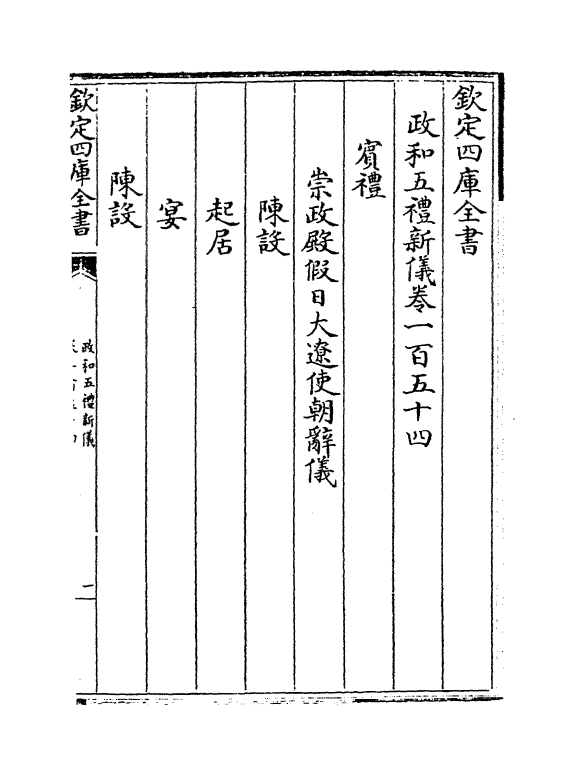 欽定四庫全書
政和五禮新儀卷一百五十四
賓禮
崇政殿假日大遼使朝辭儀
陳設
起居
宴
陳設
欽定四庫全書
政和五禮新儀
一